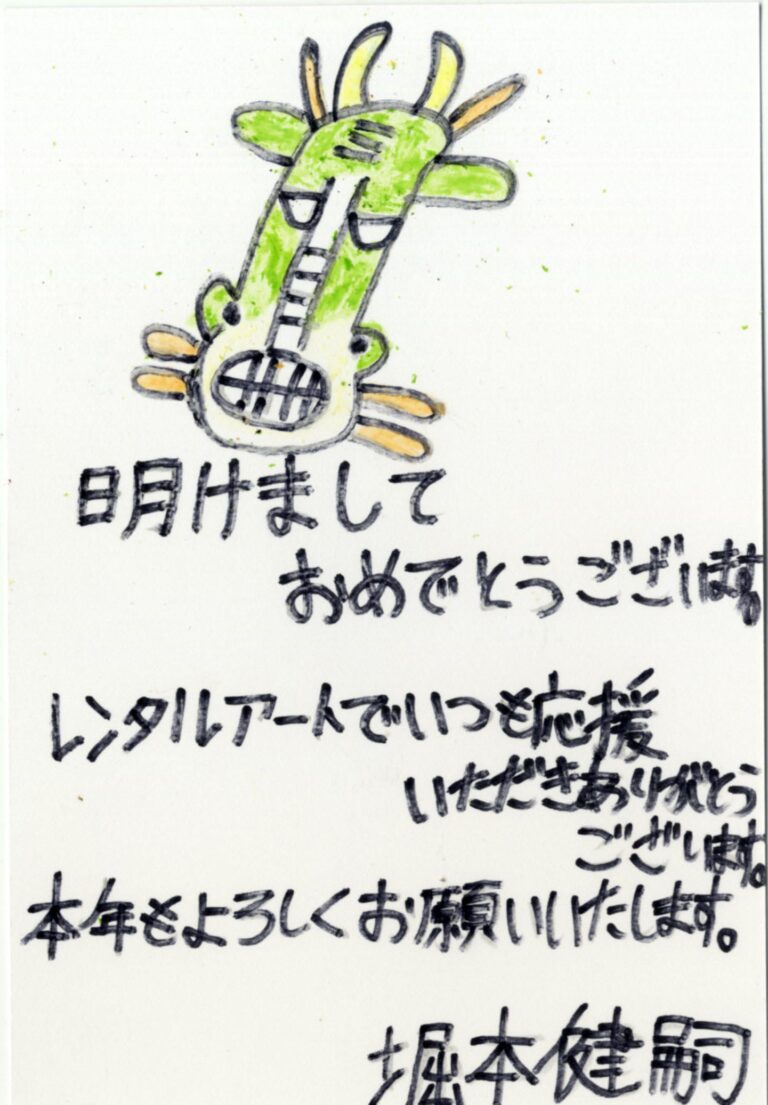 明けまして
おめでとうございます。
レンタルアートでいつも応援
いただきありがとう
ございます。
本年もよろしくお願いいたします。
堀本健嗣